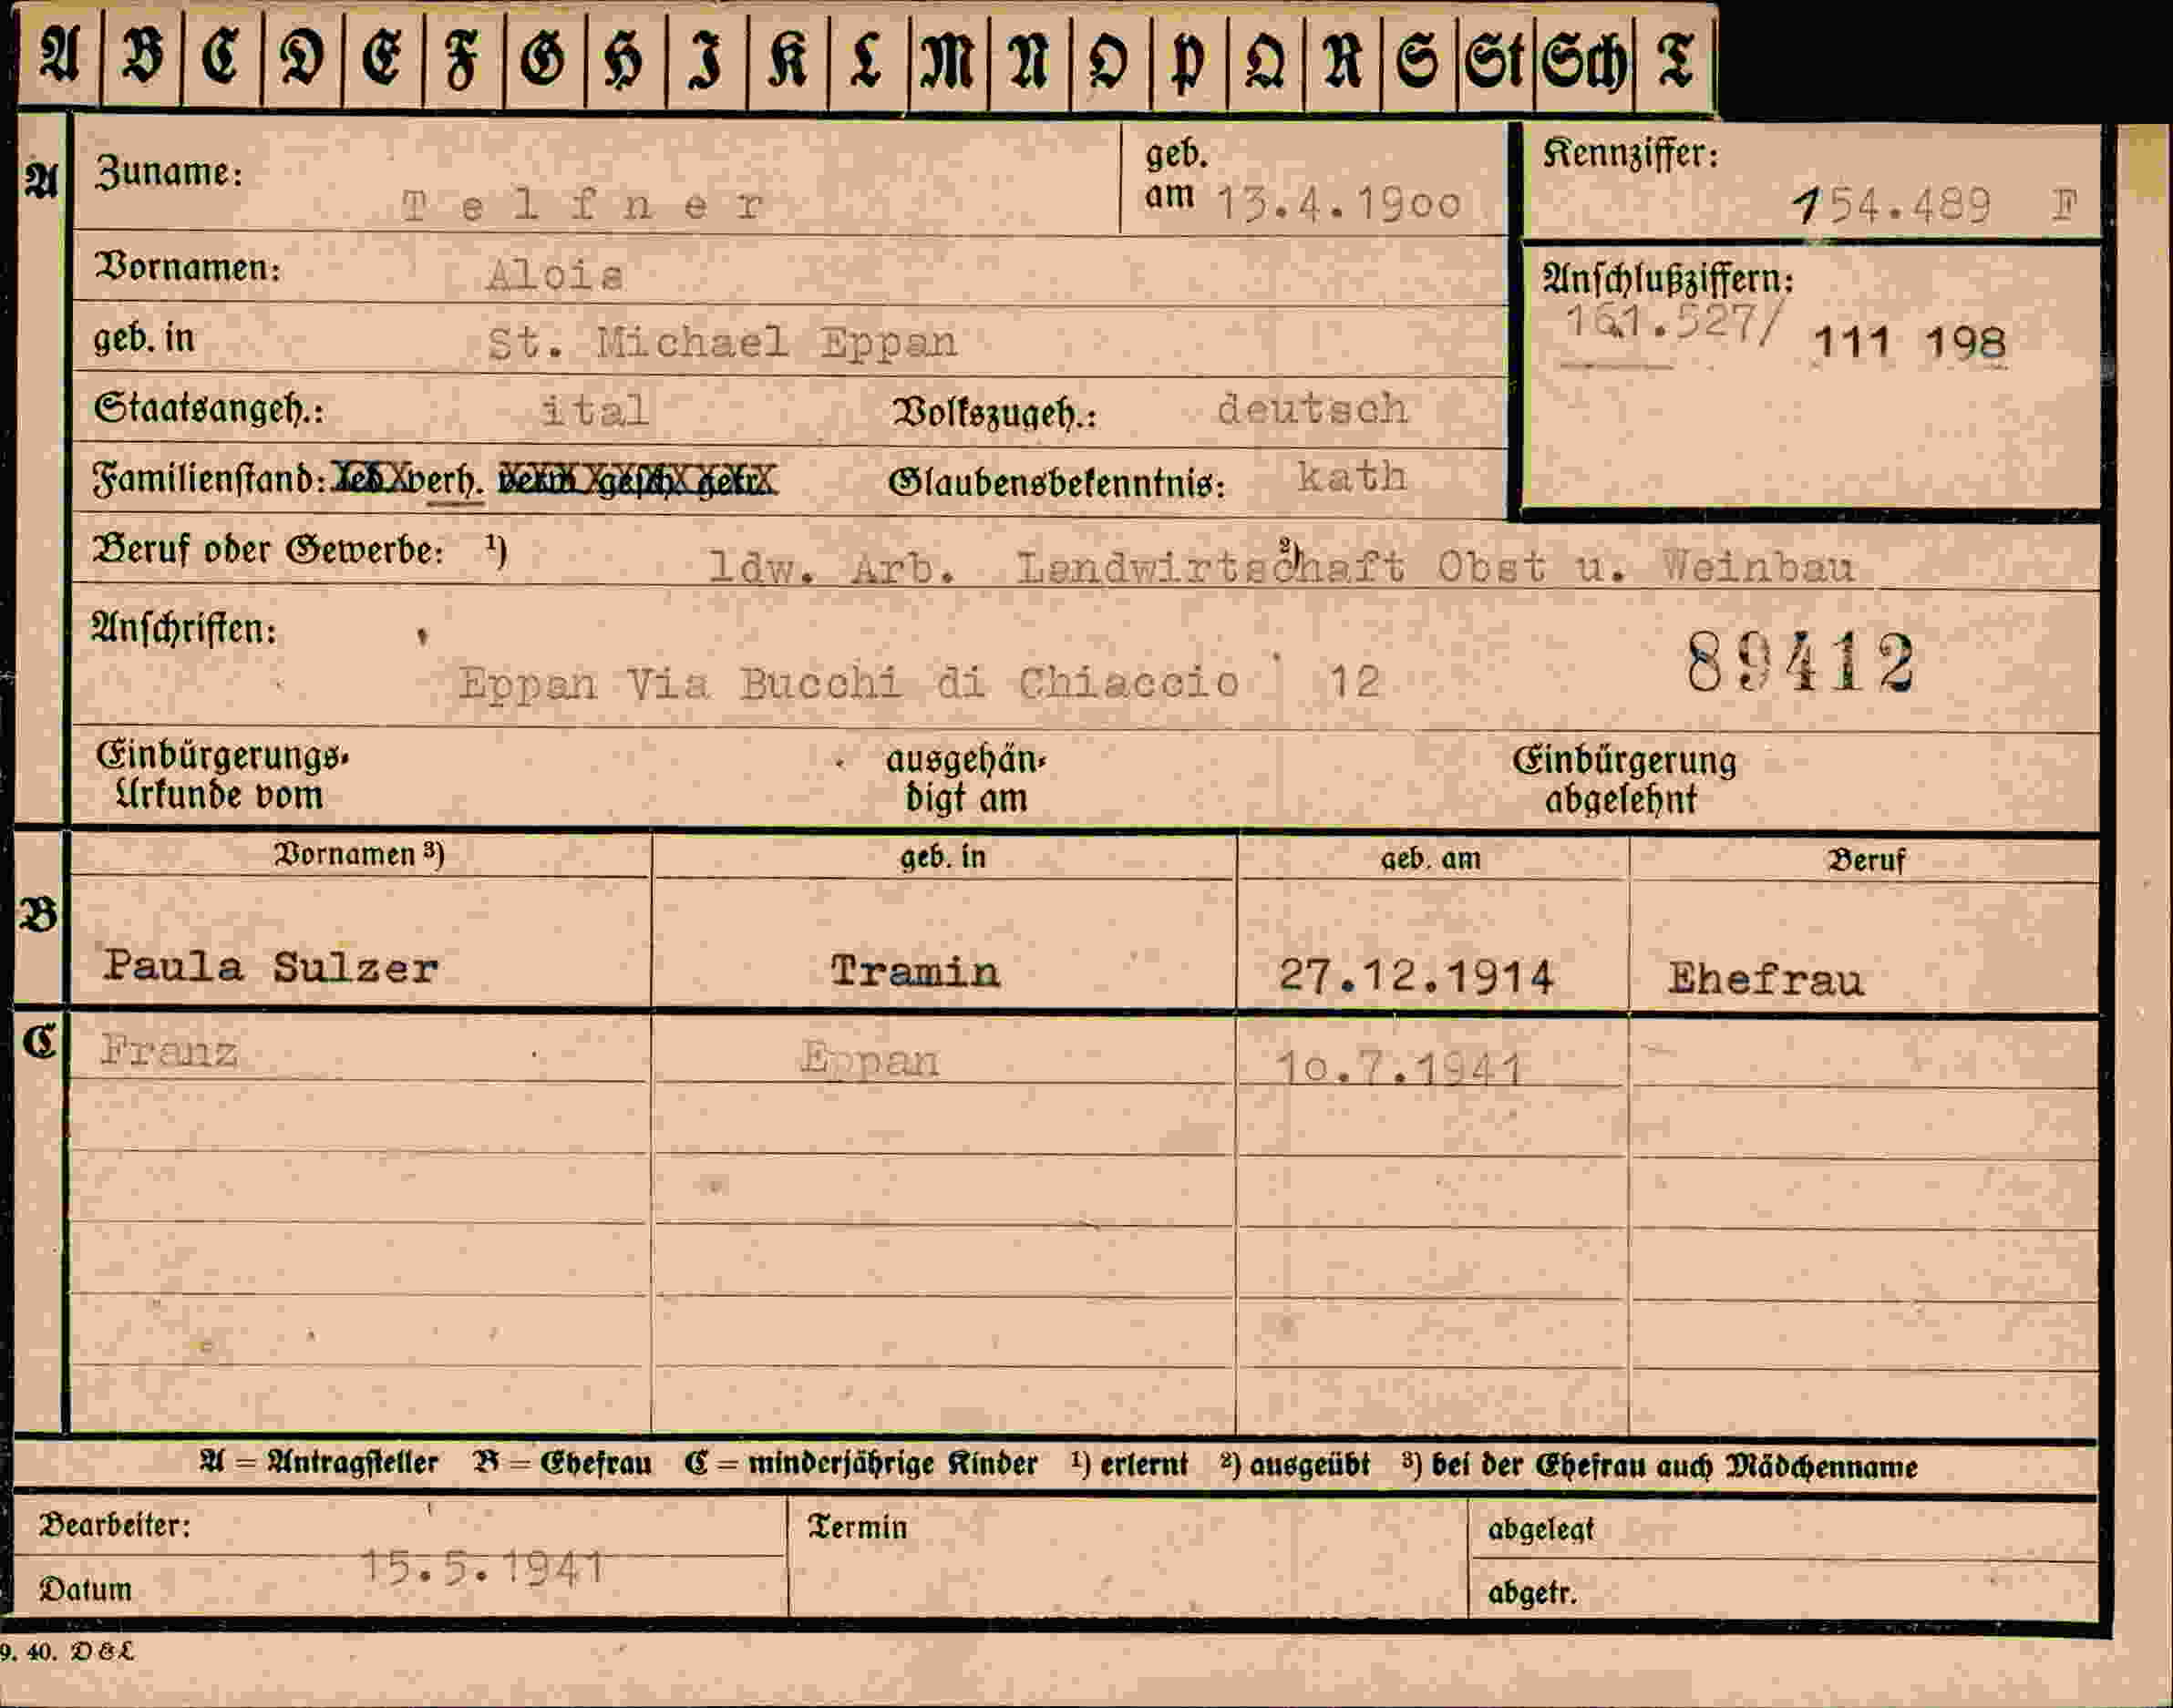 A B C D E F G H I K L M N O P Q R S St Sch T
A Zuname: Telfner geb. am 13.4.1900 Kennziffer: 154.489 F
Vornamen: Alois Anschlußziffern:
161.527/ 111 198
geb. in St. Michael Eppan
Staatsangeh.: ital Volkszugeh.: deutsch
Familienstand: led. verh. verw. gesch. getr. Glaubensbekenntnis: kath
Beruf oder Gewerbe: ¹) ldw. Arb. ²) Landwirtschaft Obst u. Weinbau
Anschriften:
Eppan Via Bucchi di Chiaccio 12 89412
Einbürgerungs-Urkunde vom ausgehändigt am Einbürgerung abgelehnt
Vornamen ³) geb. in geb. am Beruf
B Paula Sulzer Tramin 27.12.1914 Ehefrau
C Franz Eppan 10.7.1941
A = Antragsteller B = Ehefrau C = minderjährige Kinder ¹) erlernt ²) ausgeübt ³) bei der Ehefrau auch Mädchenname
Bearbeiter: Termin abgelegt
Datum 15.5.1941 abgetr.
9. 40. D&L